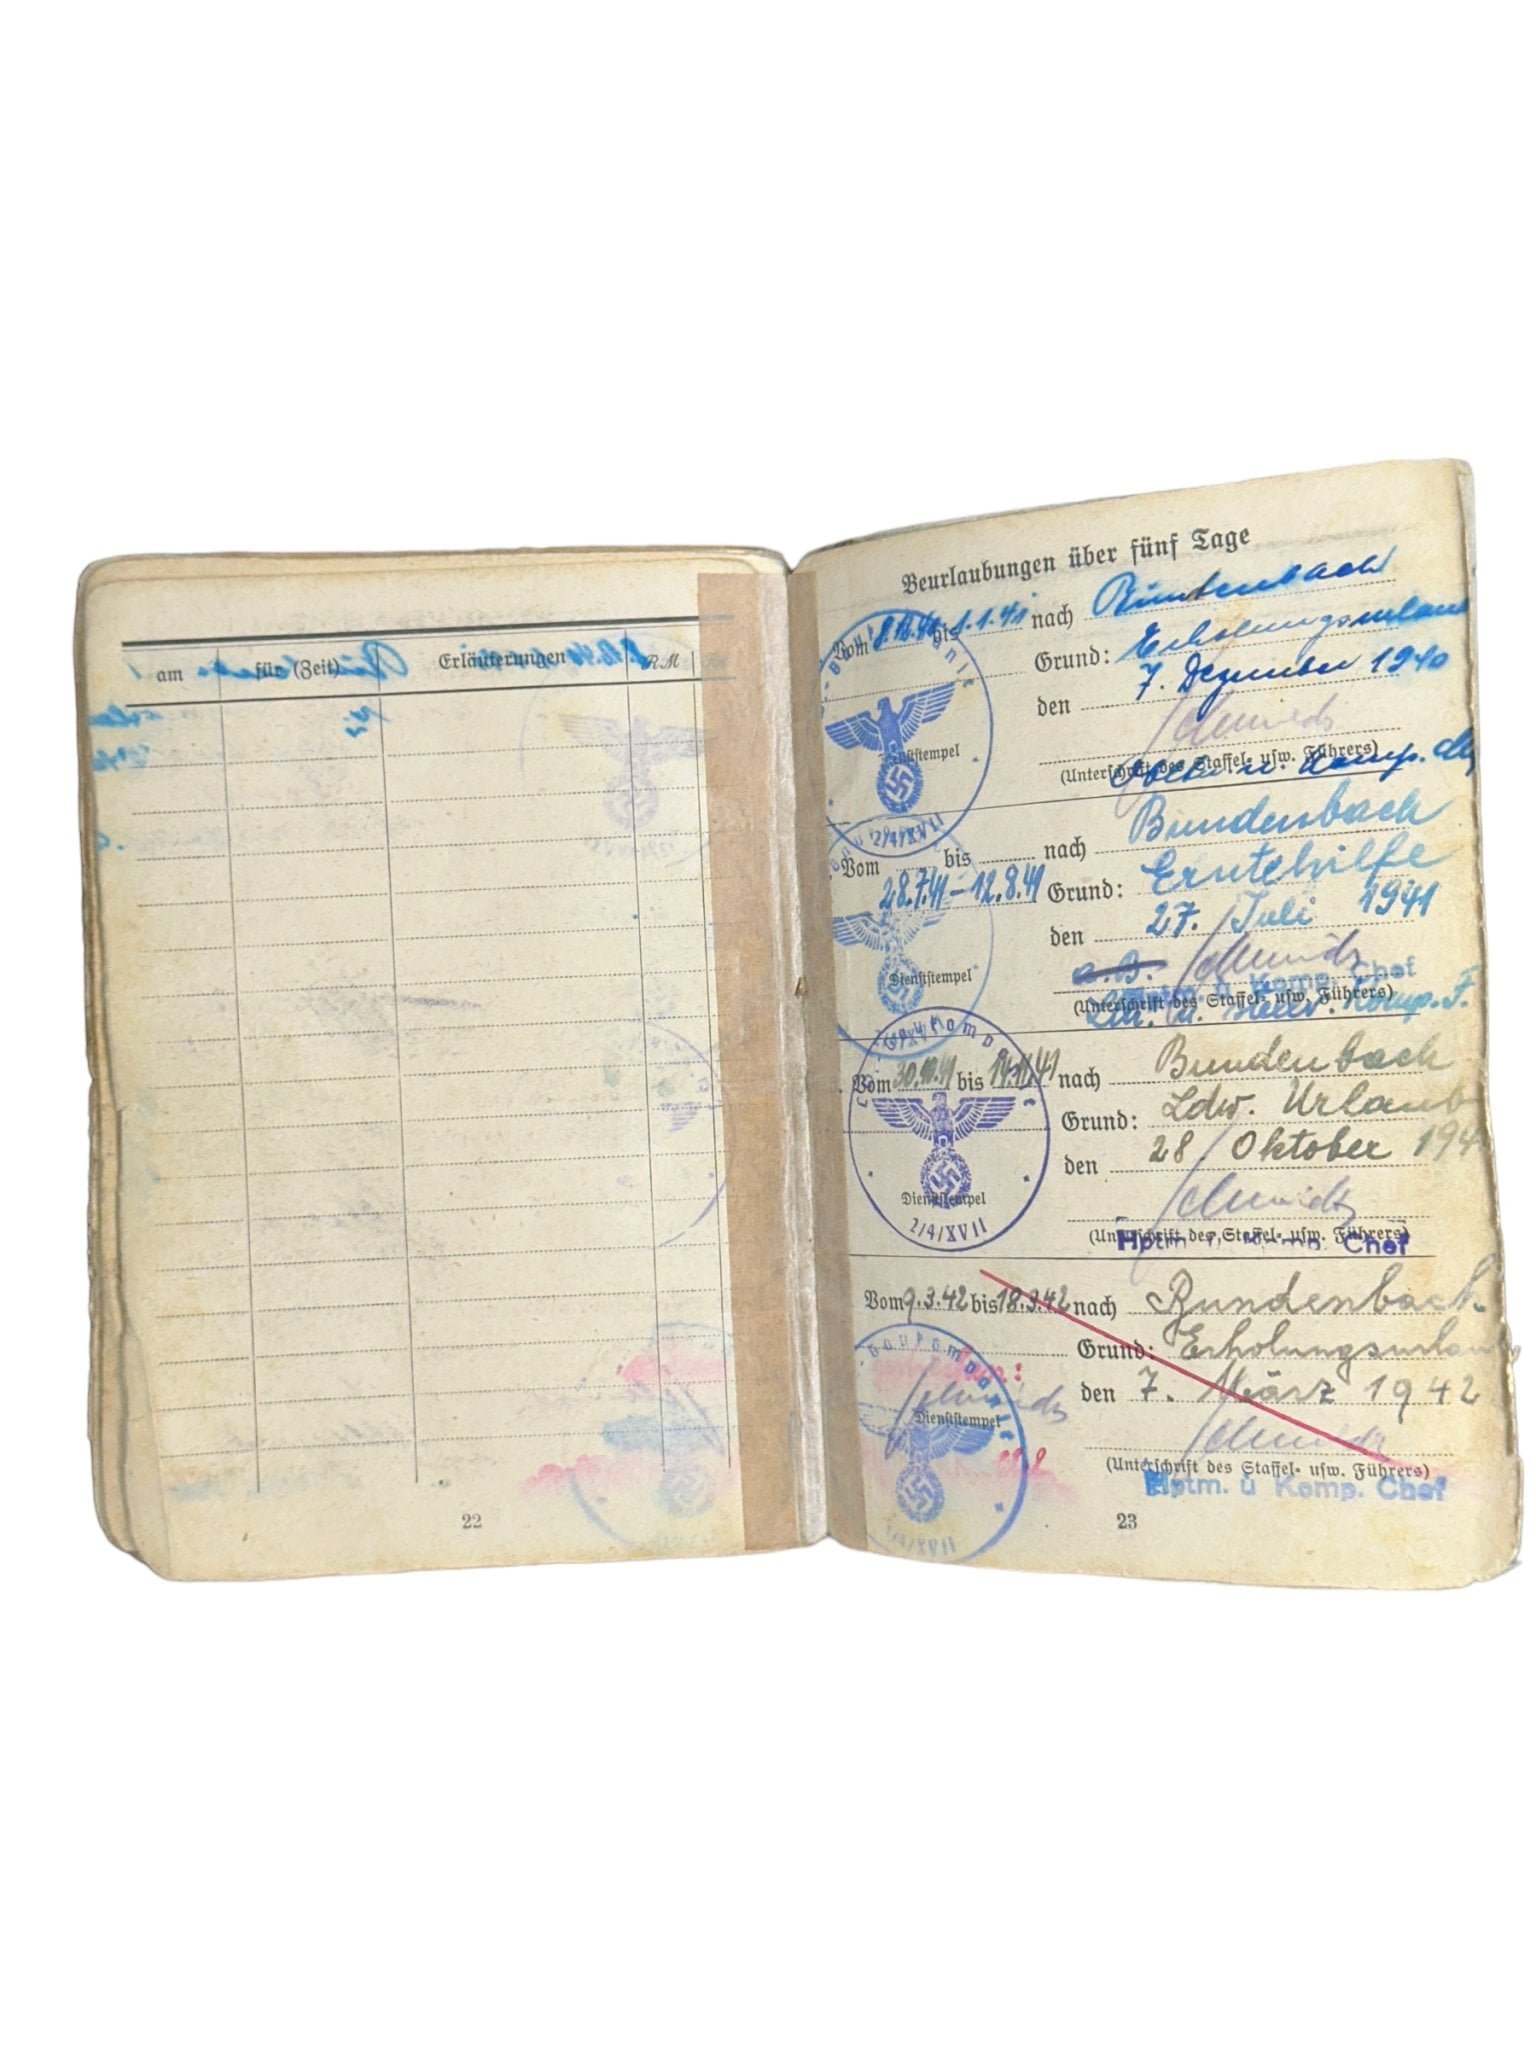 am für (Zeit) Erläuterungen R.M
22
Beurlaubungen über fünf Tage
Vom bis 1.1.41 nach Bundenbach
Grund: Erholungsurlaub
den 7. Dezember 1940
Schmidt
(Unterschrift des Staffel- usw. Führers)
u. Komp.
Dienststempel
2/4/XVII
Vom bis nach Bundenbach
28.7.41 - 12.8.41 Grund: Erntehilfe
den 27. Juli 1941
Schmidt
Hptm. u Komp. Chef
Dienststempel
(Unterschrift des Staffel- usw. Führers)
Komp. F.
Vom 30.10.41 bis 14.11.41 nach Bundenbach
Grund: Ldw. Urlaub
den 28. Oktober 194
Schmidt
Dienststempel
2/4/XVII
(Unterschrift des Staffel- usw. Führers)
Hptm. u Komp. Chef
Vom 9.3.42 bis 18.3.42 nach Bundenbach
Grund: Erholungsurlaub
den 7. März 1942
Schmidt
Dienststempel
Schmidt
(Unterschrift des Staffel- usw. Führers)
Hptm. u Komp. Chef
2/4/XVII
23